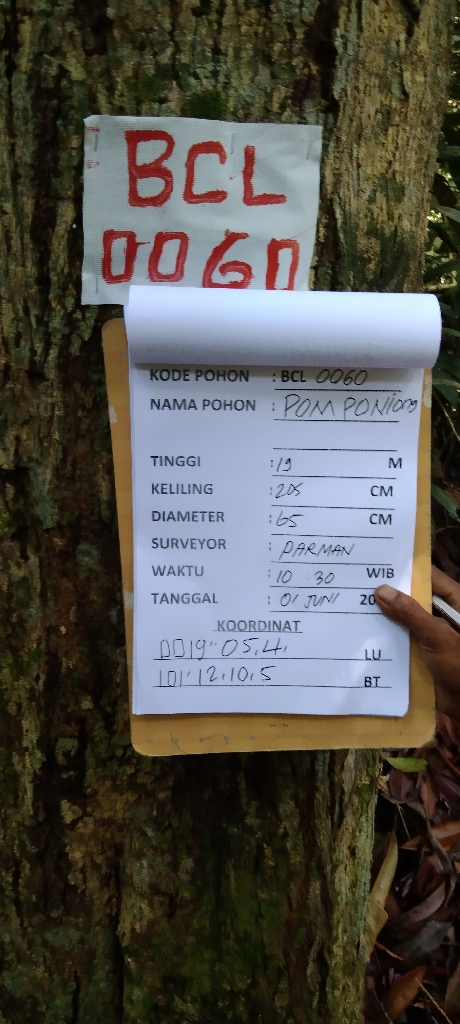 BCL
0060
KODE POHON : BCL 0060
NAMA POHON : POMPONiong
TINGGI : 19 M
KELILING : 205 CM
DIAMETER : 65 CM
SURVEYOR : PARMAN
WAKTU : 10 30 WIB
TANGGAL : 01 JUNI 20
KOORDINAT
0019" 05,4, LU
101° 12,10,5 BT